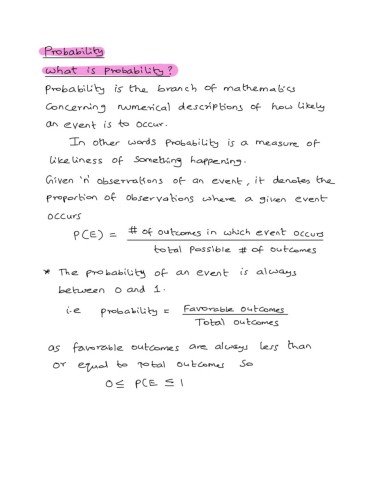 Probability
What is Probability?
Probability is the branch of mathematics
Concerning numerical descriptions of how likely
an event is to occur.
In other words Probability is a measure of
likeliness of something happening.
Given 'n' observations of an event, it denotes the
proportion of observations where a given event
occurs
P(E) = # of outcomes in which event occurs
total possible # of outcomes
* The probability of an event is always
between 0 and 1.
i.e probability = Favorable outcomes
Total outcomes
as favorable outcomes are always less than
or equal to total outcomes so
0 ≤ P(E ≤ 1